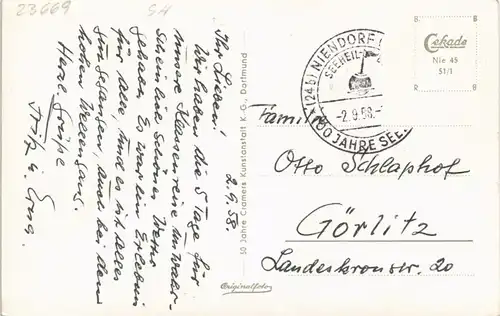 23669
S4
2.9.58
Ihr Lieben!
Wir haben die 5 Tage für
unsere Klassenreise
Schein
Es war ein Erlebnis
für alle und es ist alles
auch bei dem
hohen Wellengang.
Herzl. Grüsse
Fritz u. Erna.
50 Jahre Cramers Kunstanstalt K.-G., Dortmund
Originalfoto
(24b) NIENDORF
SEEHEIL-
-2.9.58.-
100 JAHRE SEE
Cekade
Nie 45
51/1
Familie
Otto Schlaphof
Görlitz
Landeskronstr. 20